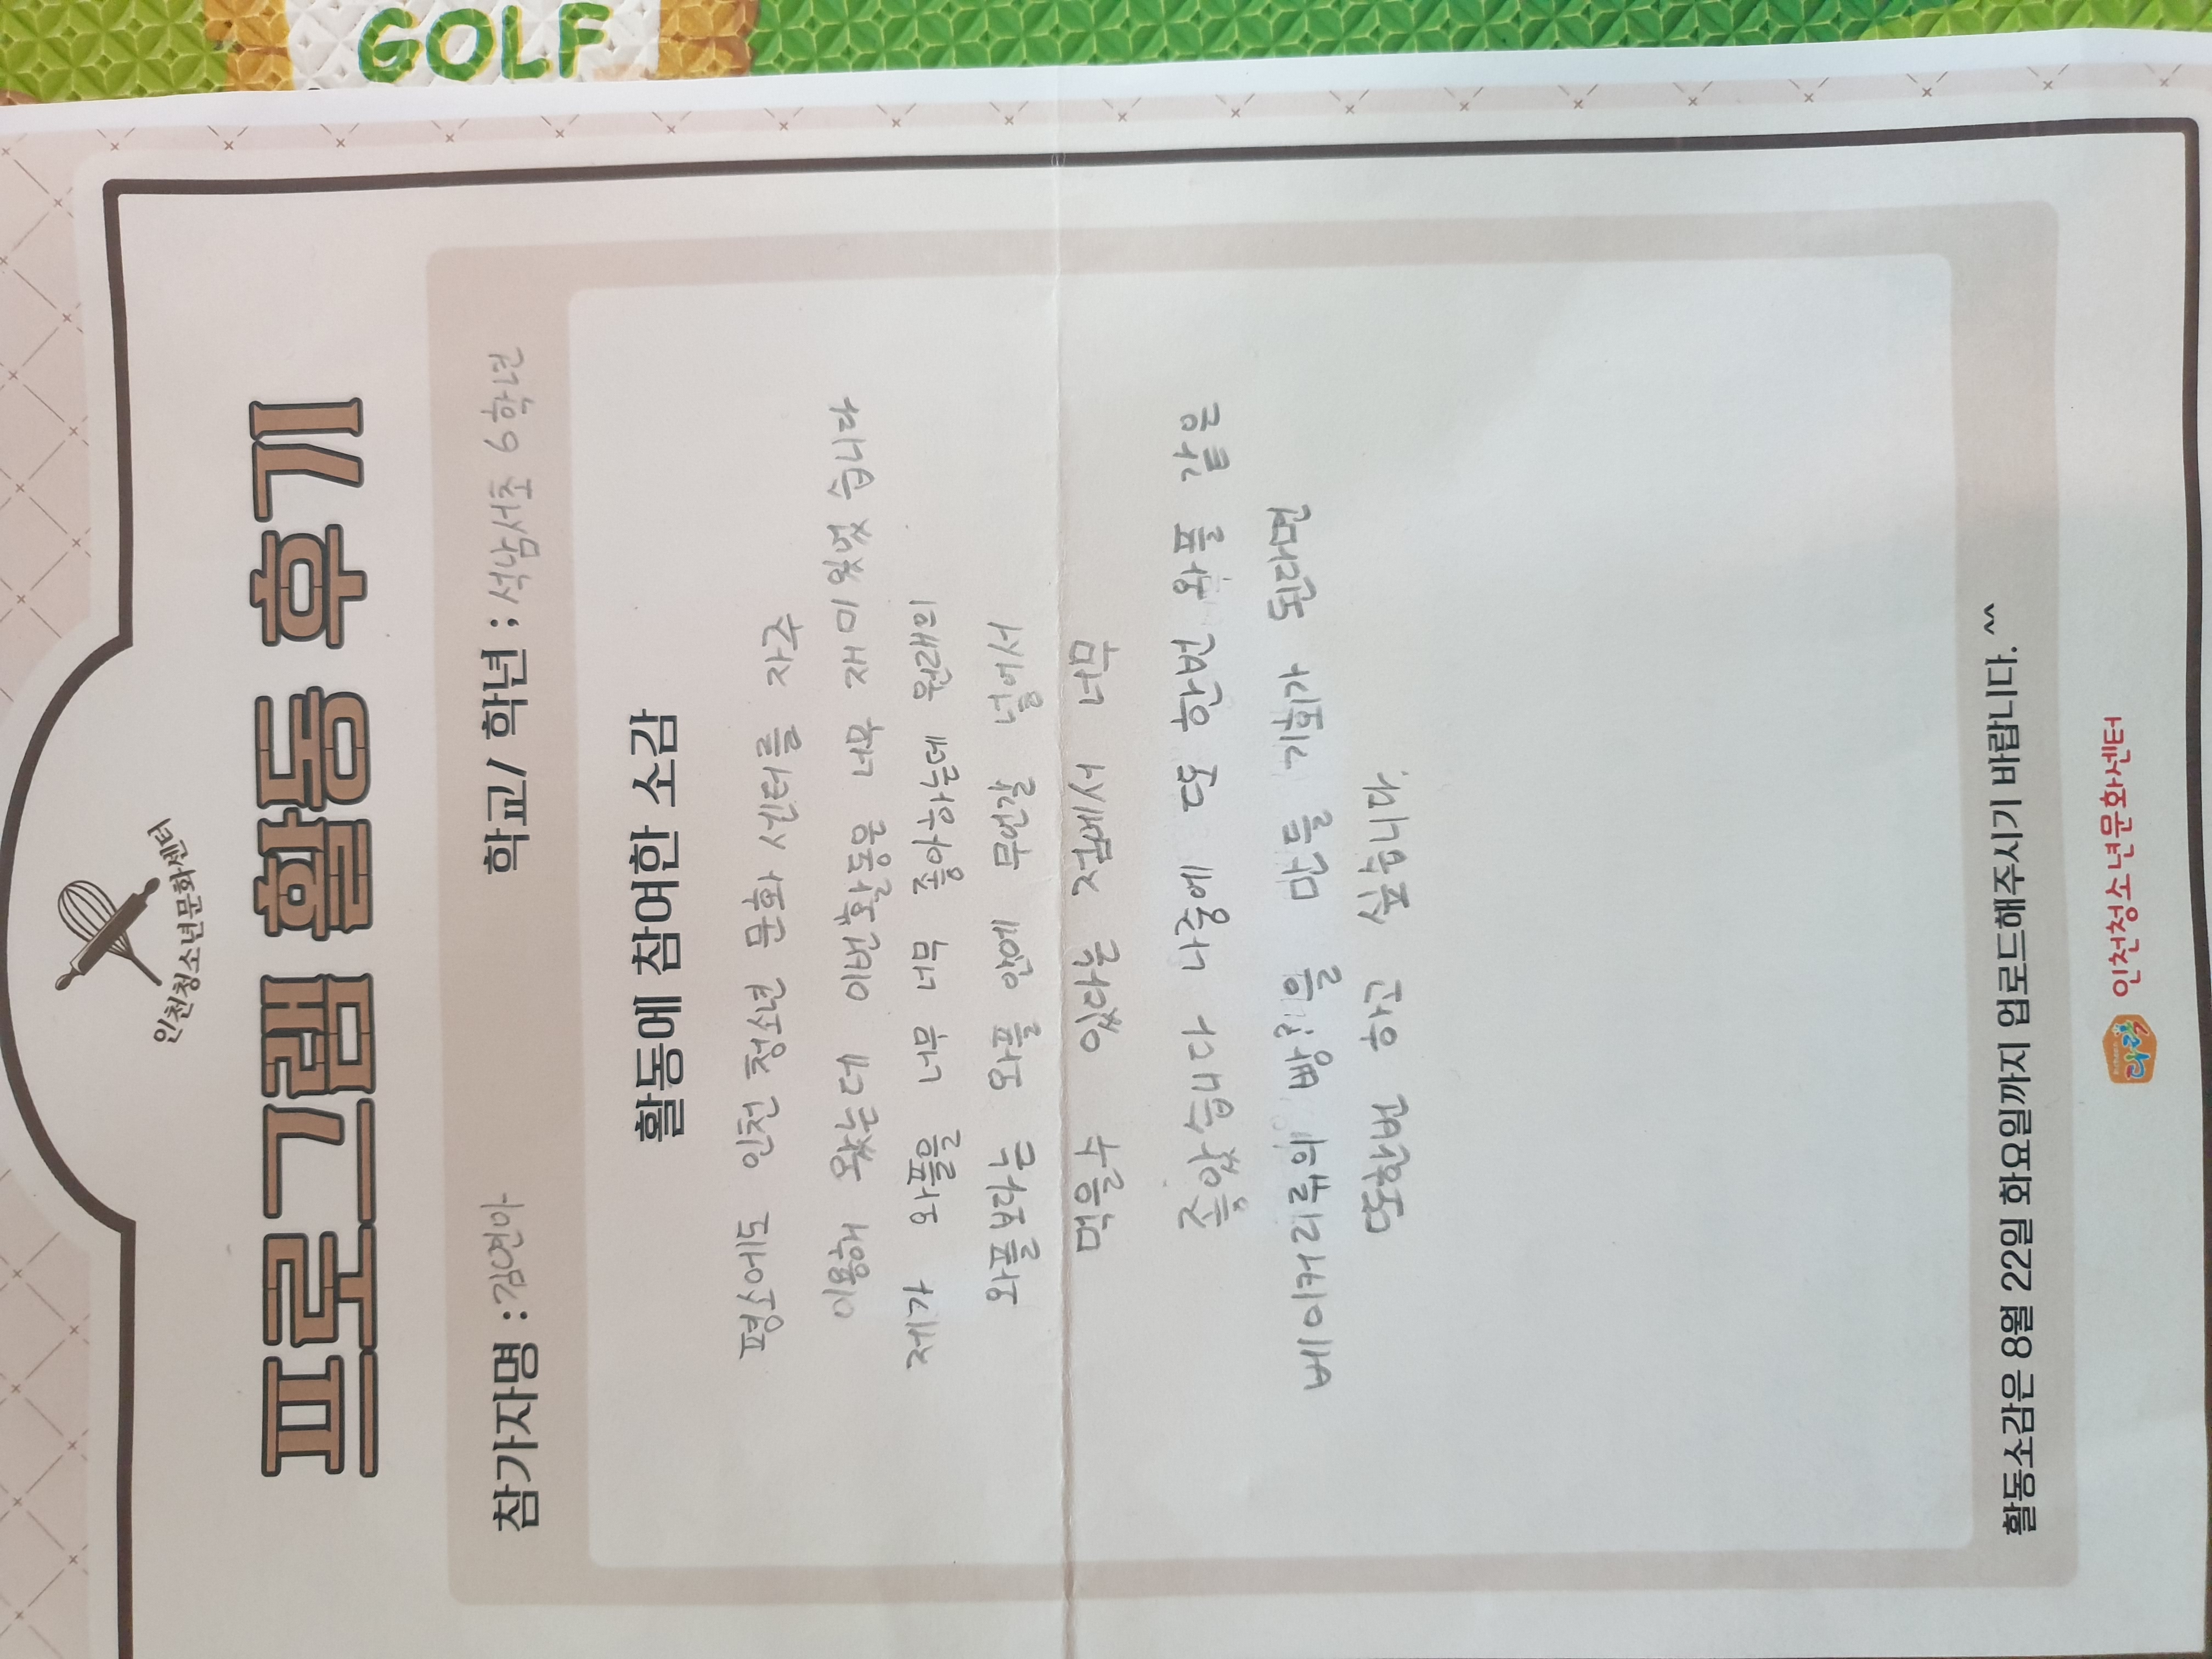 GOLF
인천청소년문화센터
프로그램 활동 후기
참가자명 : 김연아 학교/ 학년 : 석남서초 6학년
활동에 참여한 소감
평소에도 인천 청소년 문화 센터를 자주
이용해 왔는데 이번활동은 너무 재미있었습니다
제가 와플을 너무 너무 좋아하는데 원래의
와플보라는 와플 안에 무언갈 넣어서
먹을 수 있다는 점에서 너무
좋았습니다 나중에 또 한번 와플 같은
베이커리류의 빵을 만들 기회가 된다면
또한번 하고 싶습니다
활동소감은 8월 22일 화요일까지 업로드해주시기 바랍니다. ^^
인천청소년문화센터